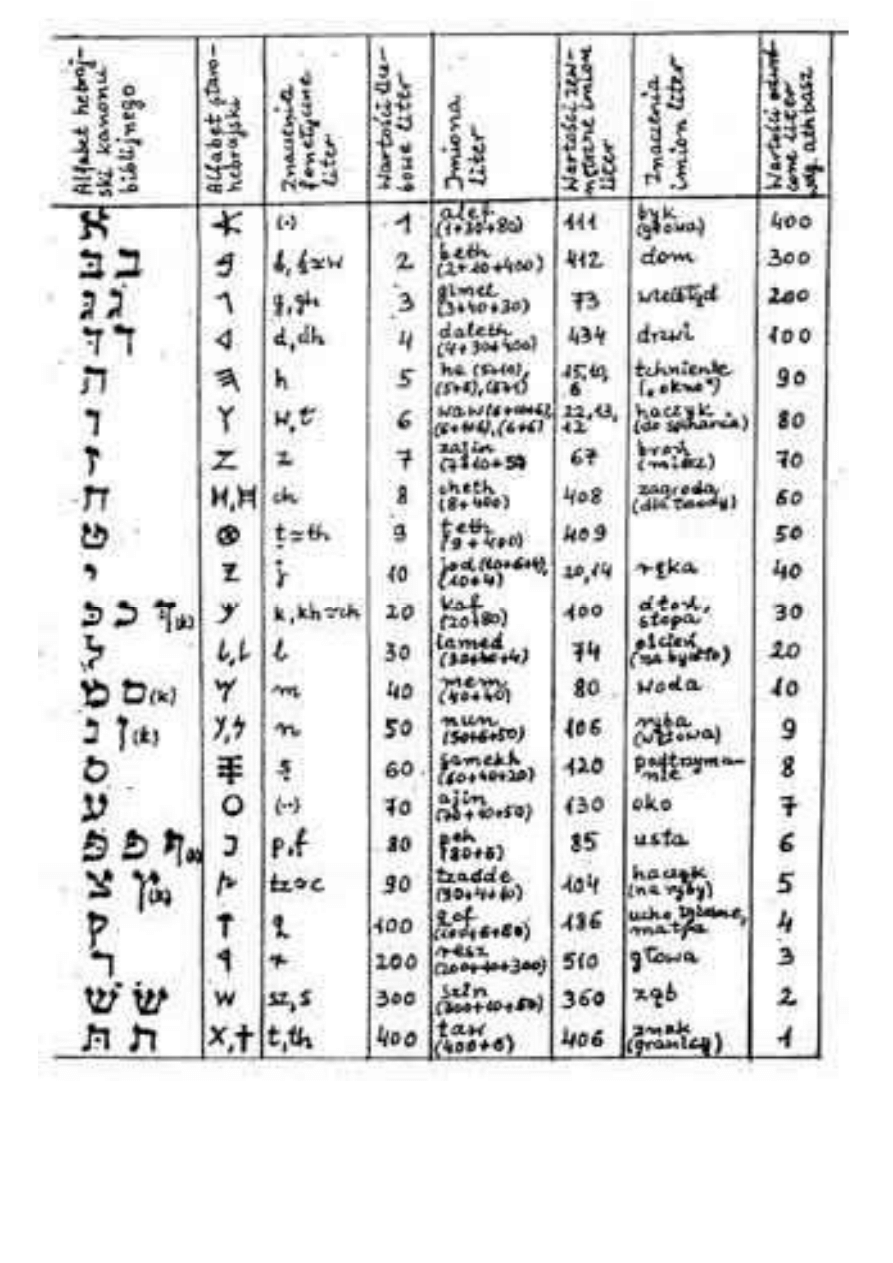 Alfabet hebraj-
ski kanonu
biblijnego
Alfabet staro-
hebrajski
Znaczenia
fonetyczne
liter
Wartości licz-
bowe liter
Imiona
liter
Wartości zew-
nętrzne imion
liter
Znaczenia
imion liter
Wartości odwró-
cone liter
wg. athbasz
א (·) 1 alef (1+30+80) 111 byk (głowa) 400
בּ ב b, b≃w 2 beth (2+10+400) 412 dom 300
גּ ג g, gh 3 gimel (3+40+30) 73 wielbłąd 200
דּ ד d, dh 4 daleth (4+30+400) 434 drzwi 100
ה h 5 he (5+10), (5+5), (5+1) 15,10, 6 tchnienie („okno") 90
ו w, 6 waw (6+10+6), (6+1+6), (6+6) 22,13, 12 haczyk (do spinania) 80
ז Z z 7 zajin (7+10+50) 67 broń (miecz) 70
ח ch 8 cheth (8+400) 408 zagroda 60
ט ⊗ ṭ≃th 9 teth (9+400) 409 50
י Z j 10 jod (10+6+4), (10+4) 20,14 ręka 40
כּ כ ך(k) k, kh≃ch 20 kaf (20+80) 100 dłoń, stopa 30
ל l 30 lamed (30+40+4) 74 oścień (na bydło) 20
מ ם(k) m 40 mem (40+40) 80 woda 10
נ ן(k) n 50 nun (50+6+50) 106 ryba (wężowa) 9
ס ş 60 samekh (60+40+20) 120 podtrzyma-nie 8
ע O (··) 70 ajin (70+10+50) 130 oko 7
פּ פ ף(k) p, f 80 peh (80+5) 85 usta 6
צ ץ(k) tz≃c 90 tzadde (90+4+10) 104 haczyk (na ryby) 5
ק q 100 qof (100+6+80) 186 ucho małpa 4
ר r 200 resz (200+10+300) 510 głowa 3
שׁ שׂ W sz, s 300 szin (300+10+50) 360 ząb 2
תּ ת X, † t, th 400 taw (400+6) 406 znak (granicy) 1